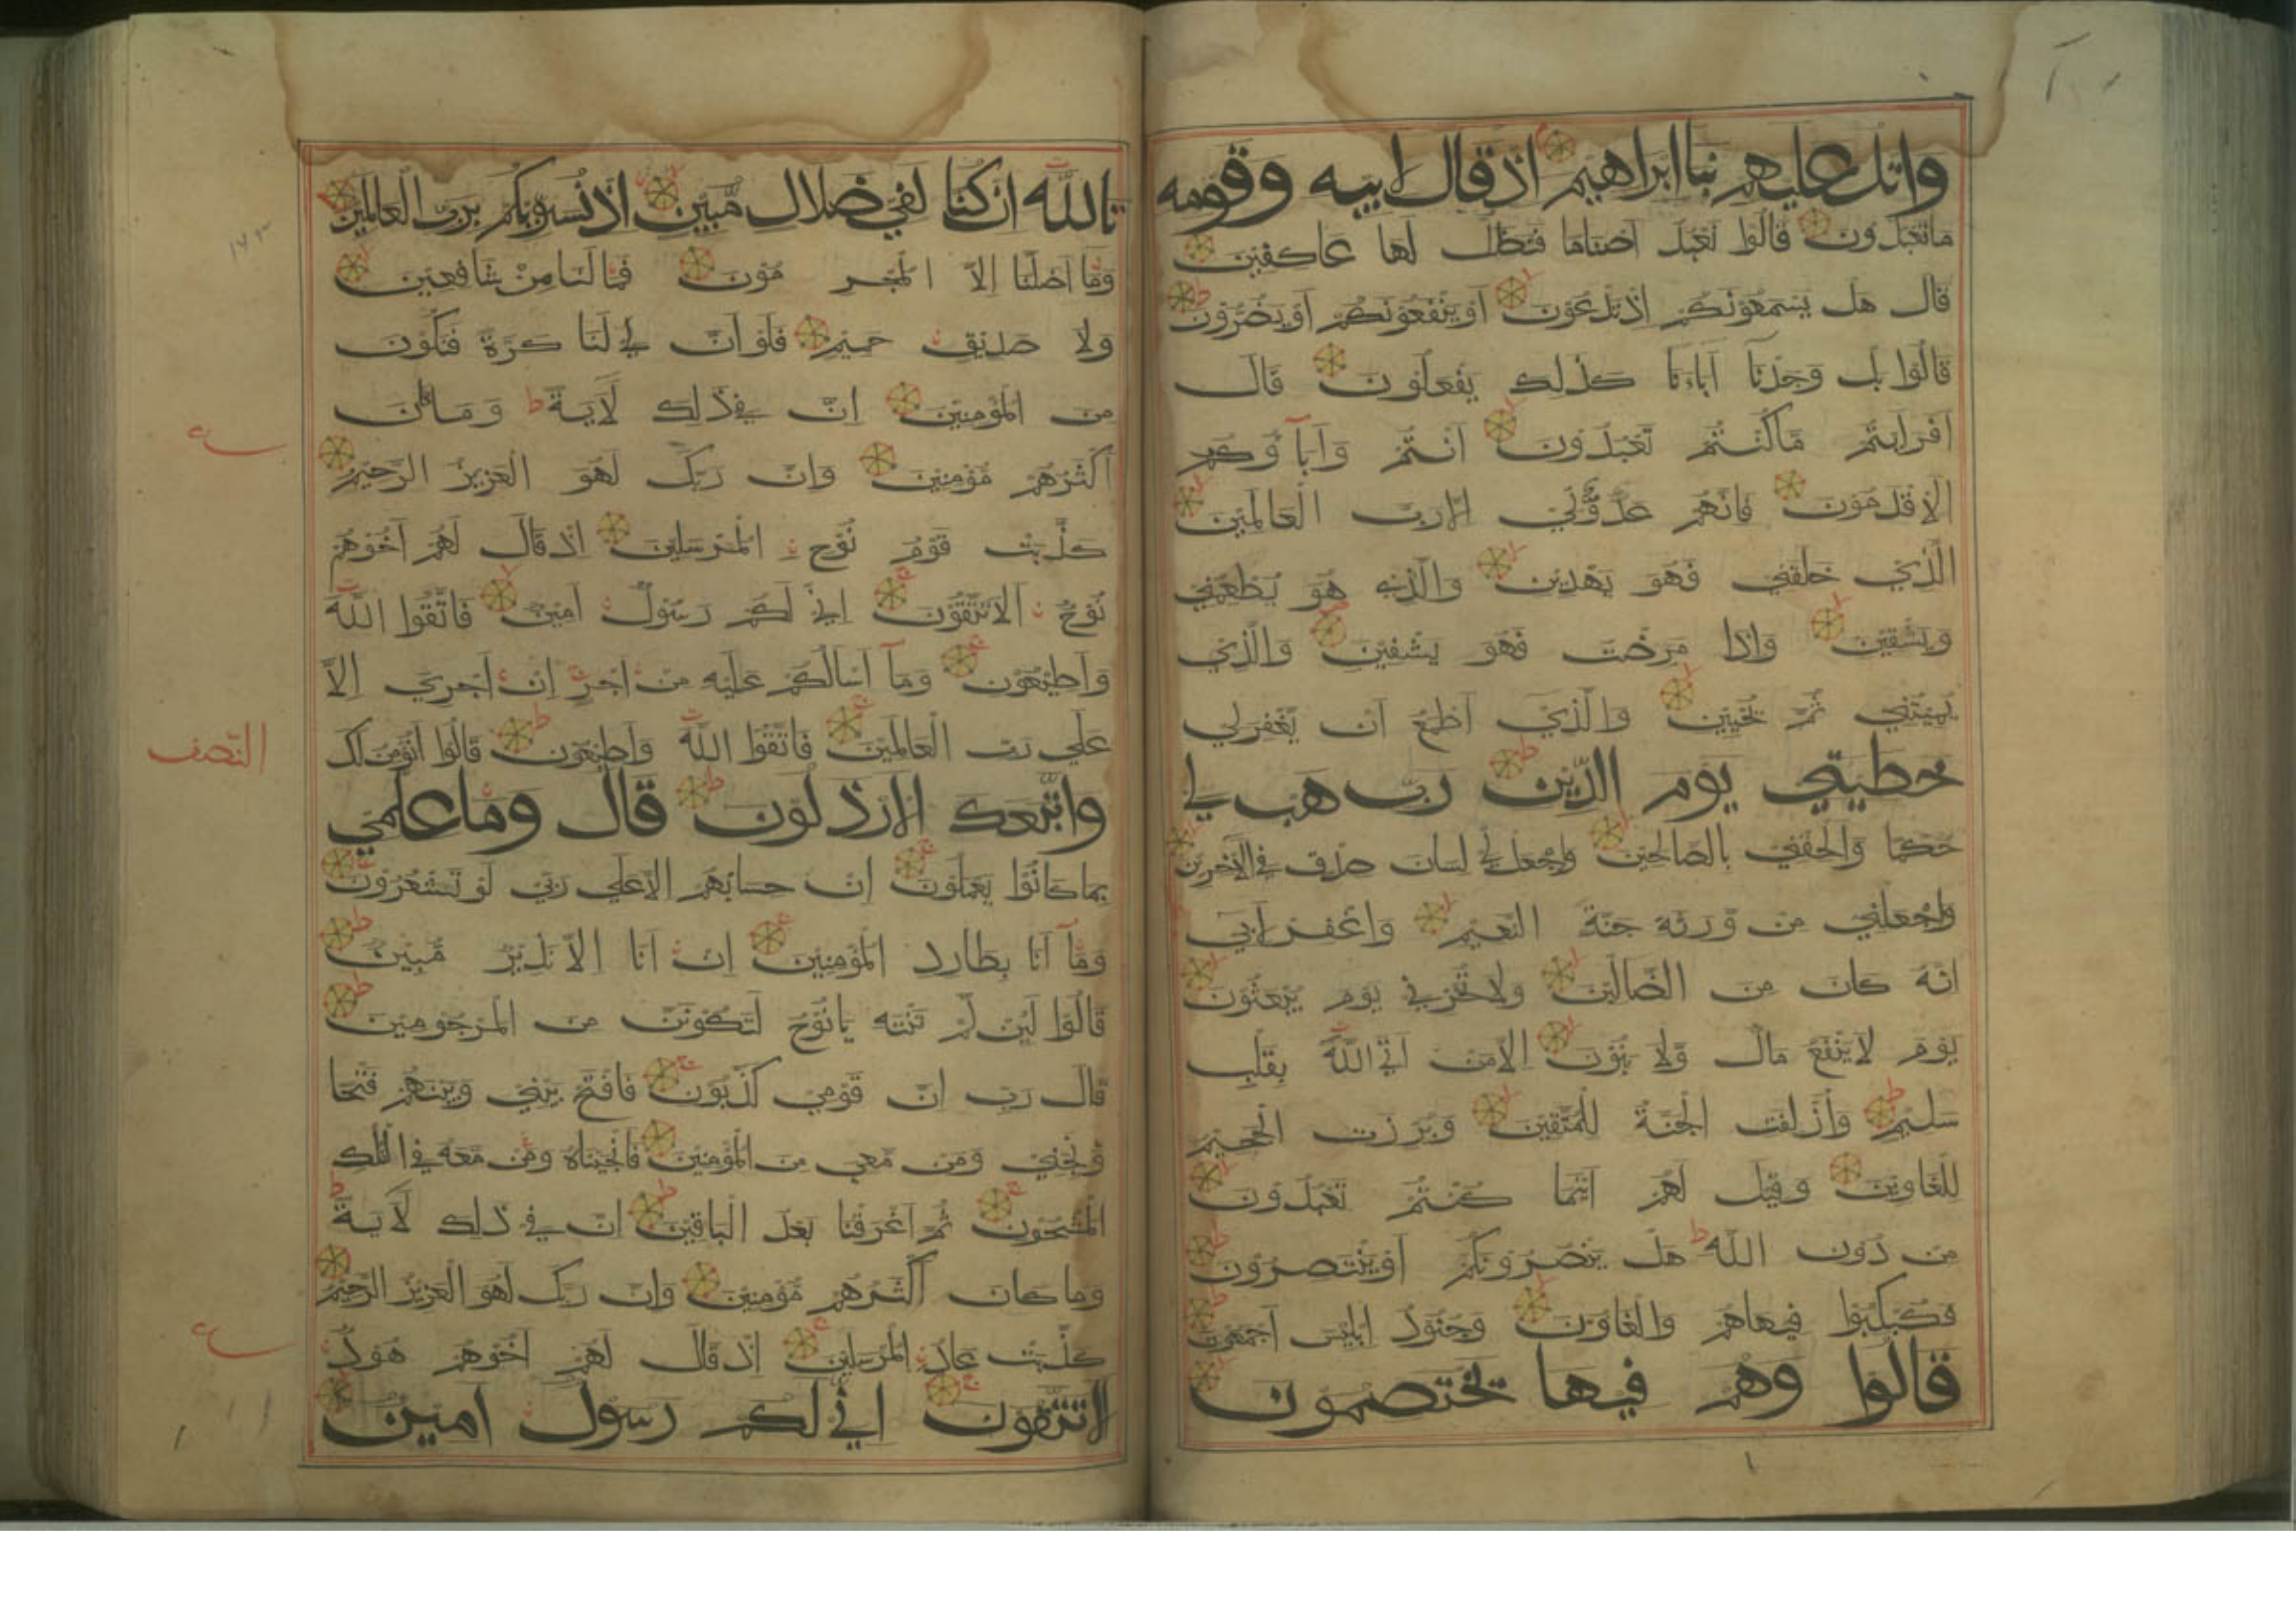 واتل عليهم نبا ابراهيم اذ قال لابيه وقومه
ما تعبدون قالوا نعبد اصناما فنظل لها عاكفين
قال هل يسمعونكم اذ تدعون او ينفعونكم او يضرون
قالوا بل وجدنا آباءنا كذلك يفعلون قال
افرايتم ما كنتم تعبدون انتم وآباؤكم
الاقدمون فانهم عدو لي الا رب العالمين
الذي خلقني فهو يهدين والذي هو يطعمني
ويسقين واذا مرضت فهو يشفين والذي
يميتني ثم يحيين والذي اطمع ان يغفر لي
خطيتي يوم الدين رب هب لي
حكما والحقني بالصالحين واجعل لي لسان صدق في الآخرين
واجعلني من ورثة جنة النعيم واغفر لابي
انه كان من الضالين ولا تخزني يوم يبعثون
يوم لا ينفع مال ولا بنون الا من اتى الله بقلب
سليم وازلفت الجنة للمتقين وبرزت الجحيم
للغاوين وقيل لهم اينما كنتم تعبدون
من دون الله هل ينصرونكم او ينتصرون
فكبكبوا فيها هم والغاون وجنود ابليس اجمعون
قالوا وهم فيها يختصمون
تالله ان كنا لفي ضلال مبين اذ نسويكم برب العالمين
وما اضلنا الا المجرمون فما لنا من شافعين
ولا صديق حميم فلو ان لنا كرة فنكون
من المؤمنين ان في ذلك لآية وما كان
اكثرهم مؤمنين وان ربك لهو العزيز الرحيم
كذبت قوم نوح المرسلين اذ قال لهم اخوهم
نوح الا تتقون اني لكم رسول امين فاتقوا الله
واطيعون وما اسالكم عليه من اجر ان اجري الا
على رب العالمين فاتقوا الله واطيعون قالوا انؤمن لك
النصف
واتبعك الارذلون قال وما علمي
بما كانوا يعملون ان حسابهم الا على ربي لو تشعرون
وما انا بطارد المؤمنين ان انا الا نذير مبين
قالوا لين لم تنته يا نوح لتكونن من المرجومين
قال رب ان قومي كذبون فافتح بيني وبينهم فتحا
ونجني ومن معي من المؤمنين فانجيناه ومن معه في الفلك
المشحون ثم اغرقنا بعد الباقين ان في ذلك لآية
وما كان اكثرهم مؤمنين وان ربك لهو العزيز الرحيم
كذبت عاد المرسلين اذ قال لهم اخوهم هود
الا تتقون اني لكم رسول امين